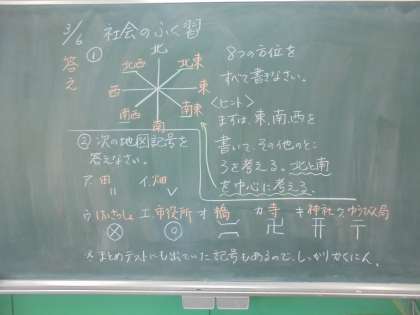 3/6 社会のふく習
①
答え
北
北西
北東
西
東
南西
南東
南
8つの方位を
すべて書きなさい。
〈ヒント〉
まずは、東、南、西を
書いて、その他のところ
を考える。北と南
を中心に考える。
②次の地図記号を
答えなさい。
ア.田 イ.畑
ウ けいさつしょ エ.市役所 オ 橋 カ 寺 キ 神社 ク ゆうびん局
卍 〒
×まとめテストにも出ていた記号もあるので、しっかりかくにん。